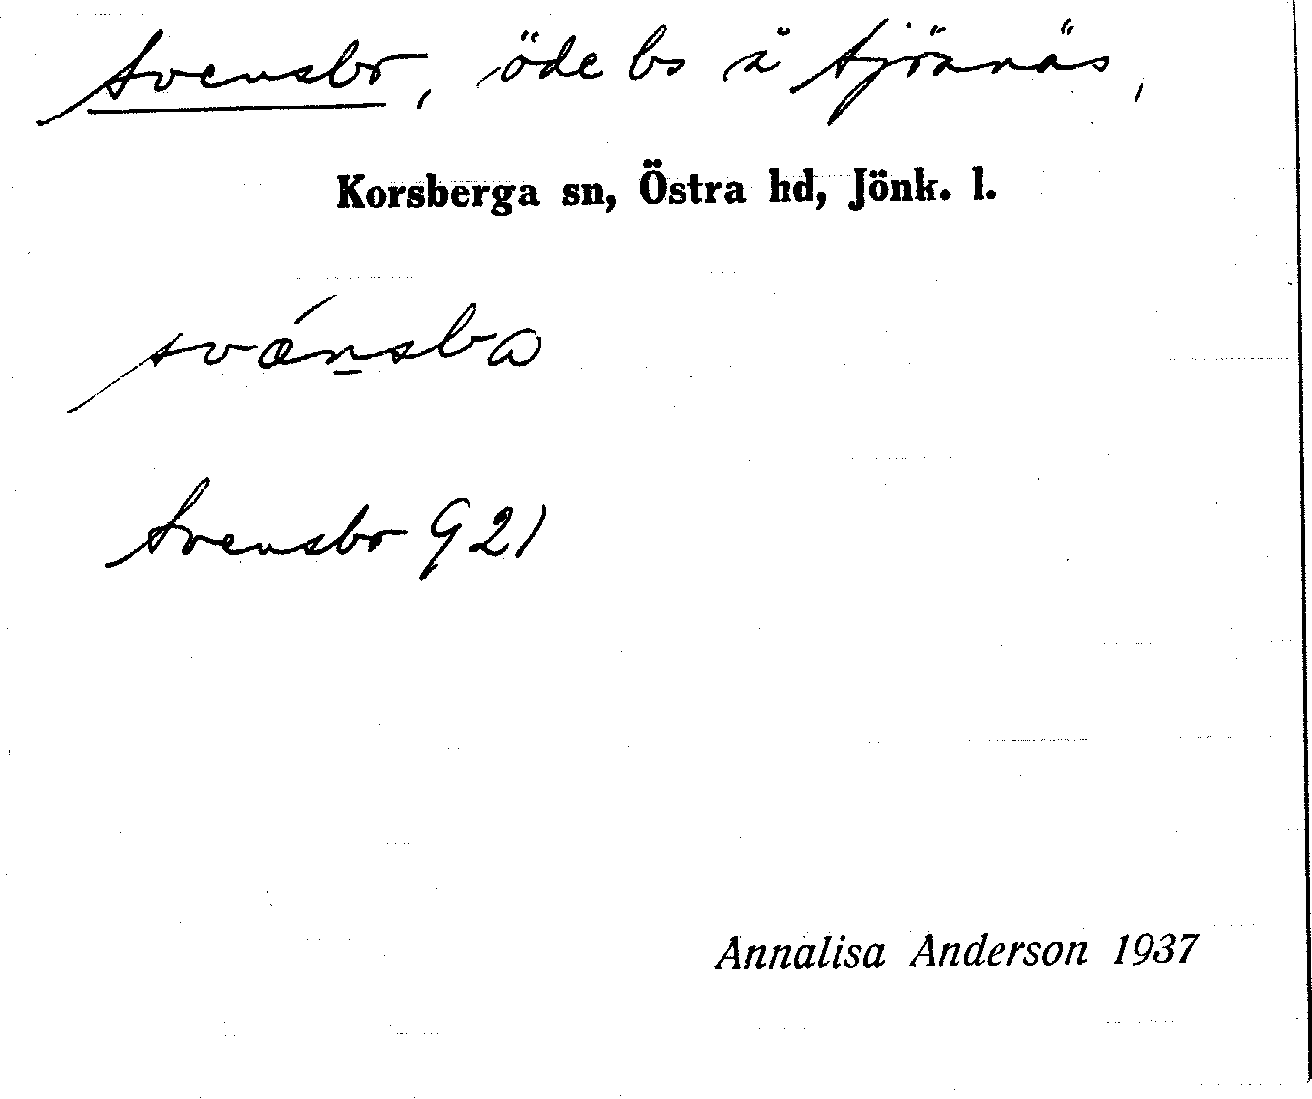 Svensbo, öde bs å Sjönnäs,
Korsberga sn, Östra hd, Jönk. l.
svǽnsba
Svensbo G 21
Annalisa Anderson 1937